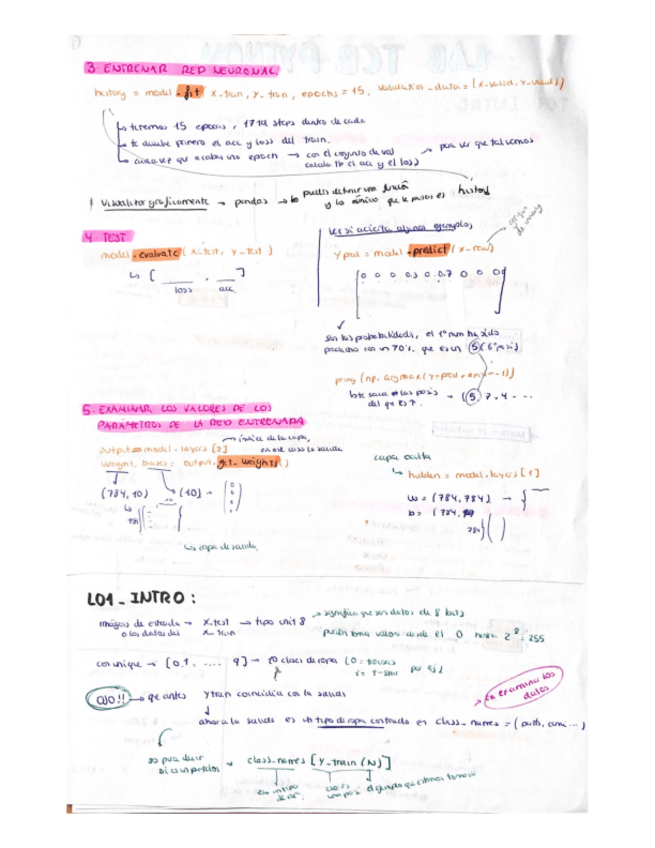 3. ENTRENAR RED NEURONAL
history = model.fit( x_train, y_train, epochs = 15, validation_data = (x_valid, y_valid))
tenemos 15 epocas, 1719 steps dentro de cada
te devuelve primero el acc y loss del train.
cada vez que acabas una epoch → con el conjunto de val → para ver que tal vamos
calcula tb el acc y el loss
! Visualizar graficamente → pandas → puedes definir una función
y lo único que le pasas es history
4. TEST
model.evaluate( x_test, y_test )
↳ [ ___ , ___ ]
loss acc
ver si acierta algunos ejemplos
y pred = model.predict( x_new)
[0 0 0 0.3 0 0.7 0 0 0]
son las probabilidades, el 1º num ha sido
predicho con un 70%, que es un 5 (6ª posi)
print (np.argmax(y-pred, axis=-1))
→ (5, 7, 4 ...
del que es 1.
5. EXAMINAR LOS VALORES DE LOS
PARÁMETROS DE LA RED ENTRENADA
→ índice de la capa,
output = model.layers [2] en este caso la salida
weight, biases = output.get_weights()
(784, 10) (10) → (0
784
↳ capa de salida
capa oculta
↳ hidden = model.layers [1]
w = (784, 784) →
b = (784,
784
L01 - INTRO:
imágenes de entrada → x_test → tipo uint 8 → significa que son datos de 8 bits
o los datos del x_train
pueden tomar valores desde el 0 hasta 2⁸ = 255
con unique → [0,1. .... 9] → 10 clases de ropa (0 = trouses por ej)
1 = t-shir
OJO!! → que antes y train coincidia con la salida
→ en examinar los
datos
ahora la salida es un tipo de ropa contenido en class_names = (
so para decir
si es un pantalon → class_names [y_train (N)]
es un tipo
de
una posi el ejemplo que estemos tomando